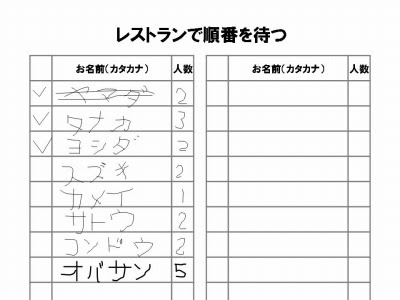 レストランで順番を待つ
お名前(カタカナ) 人数 お名前(カタカナ) 人数
ヤマダ 2
タナカ 3
ヨシダ 2
スズキ 2
カメイ 1
サトウ 2
コンドウ 2
オバサン 5